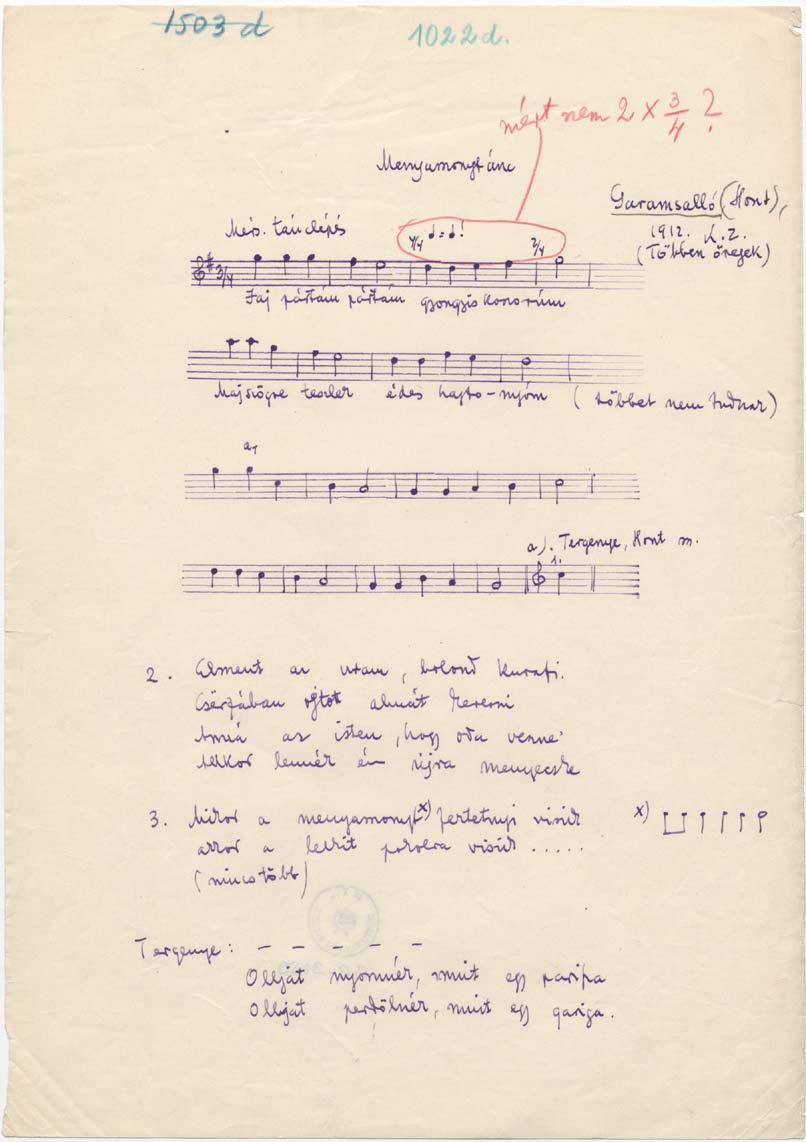 1503 d
1022 d.
mért nem 2 x 3/4 ?
Menyamonytánc
Garamsalló (Hont),
1912. K. Z.
(Többen öregek)
Mérs. tánclépés
4/4
2/4
3/4
Faj pártám pártám gyöngyös
teszler édes hajto-nyóm (többet nem tudnak)
a)
a). Tergenye, Hont m.
1.
2. Elment az uram, bolond kurafi.
Csérfában almát keresni
az isten, hogy oda venne
lennék én újra menyecske
3. Mikor a menyamonyt x) fertetnyi viszik
akkor a lelkit pokolra viszik .....
(nincs több)
x)
Tergenye: – – – – –
Olliját nyomnék, mint egy paripa
Olliját perdölnék, mint egy gariga.